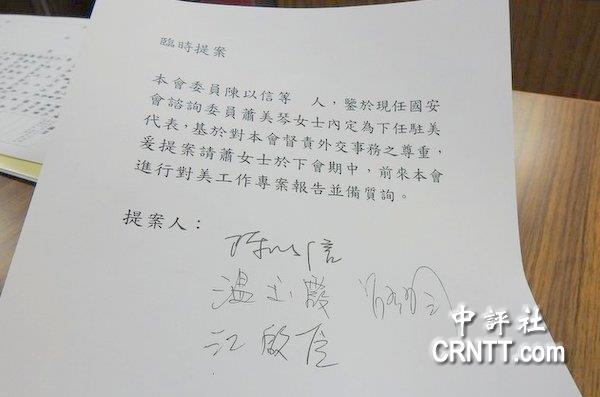 臨時提案
本會委員陳以信等　人，鑒於現任國安
會諮詢委員蕭美琴女士內定為下任駐美
代表，基於對本會督責外交事務之尊重，
爰提案請蕭女士於下會期中，前來本會
進行對美工作專案報告並備質詢。
提案人：
陳以信
溫玉霞
江啟臣
中評社
CRNTT.com